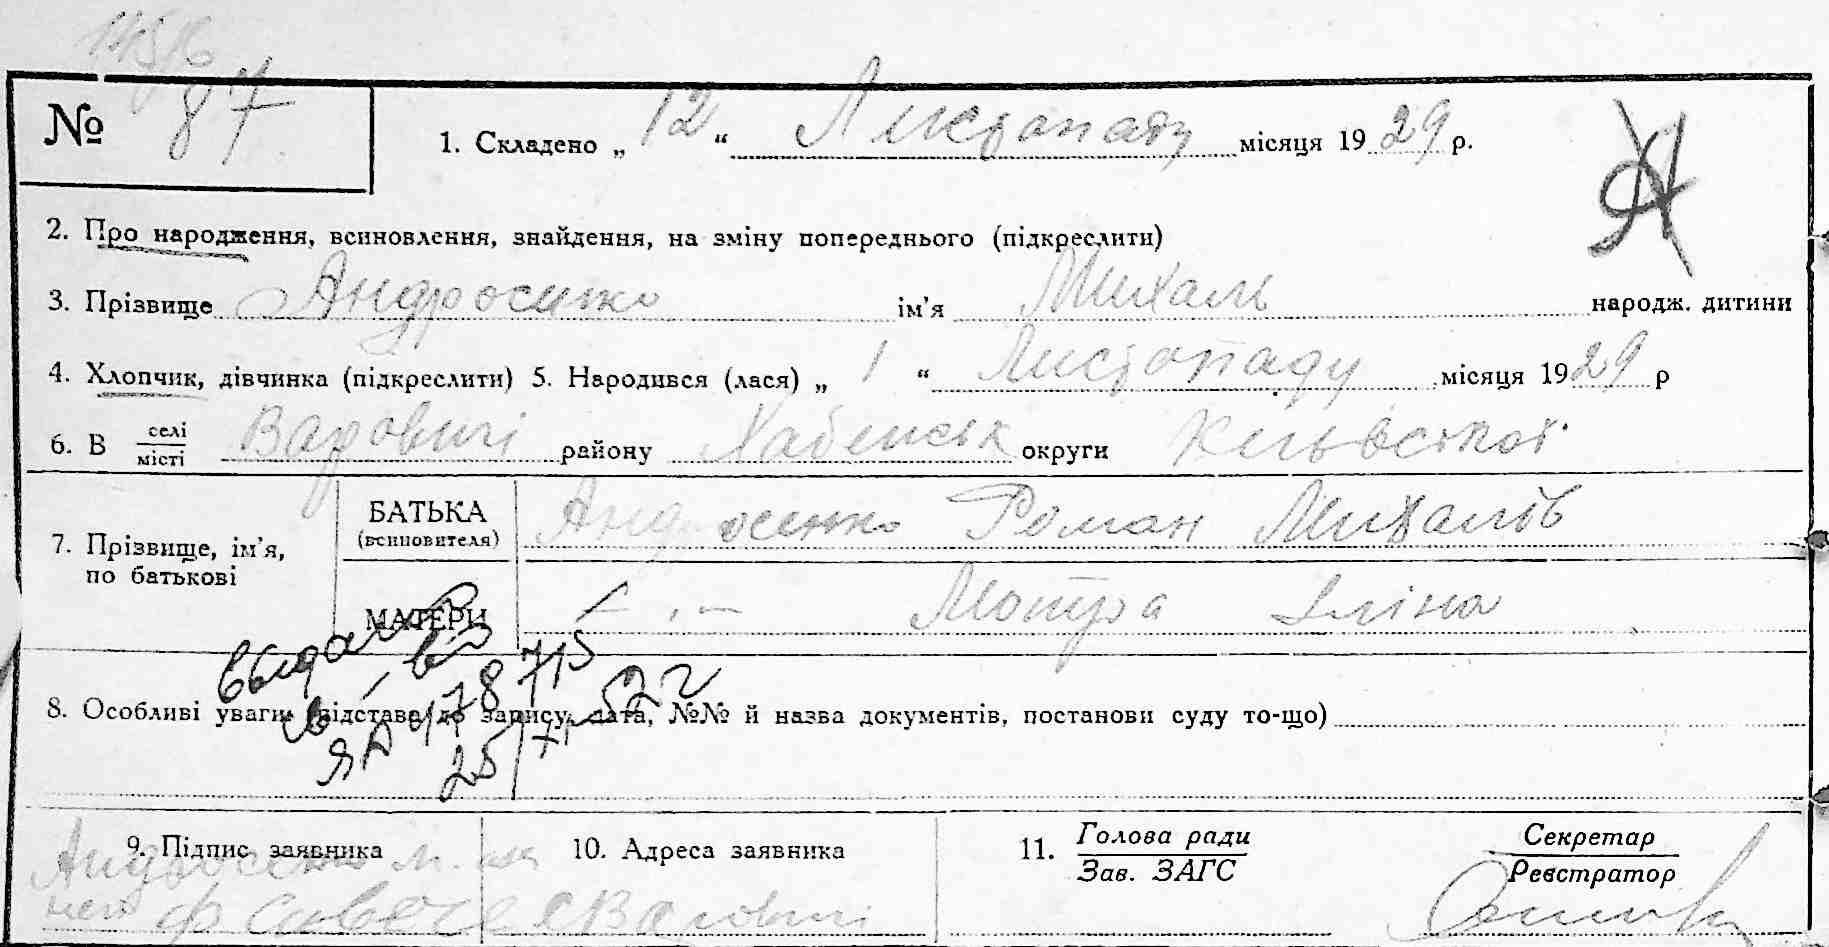 № 87
1. Складено „ 12 “ Листопаду місяця 1929 р.
2. Про народження, всиновлення, знайдення, на зміну попереднього (підкреслити)
3. Прізвище Андросенко ім’я Михаль народж. дитини
4. Хлопчик, дівчинка (підкреслити) 5. Народився (лася) „ 1 “ Листопаду місяця 1929 р
6. В селі місті Варовичі району Хабенськ округи Київської
7. Прізвище, ім’я, по батькові
БАТЬКА (всиновителя) Андросенко Роман Михалів
МАТЕРИ –„– Мотра Іліна
выдано
св-во
ЯА 478715
8. Особливі уваги (відстава до запису, дата, №№ й назва документів, постанови суду то-що)
25/VI-52 г
9. Підпис заявника 10. Адреса заявника 11. Голова ради Секретар
Зав. ЗАГС Реєстратор
Андросенко
Варовичі